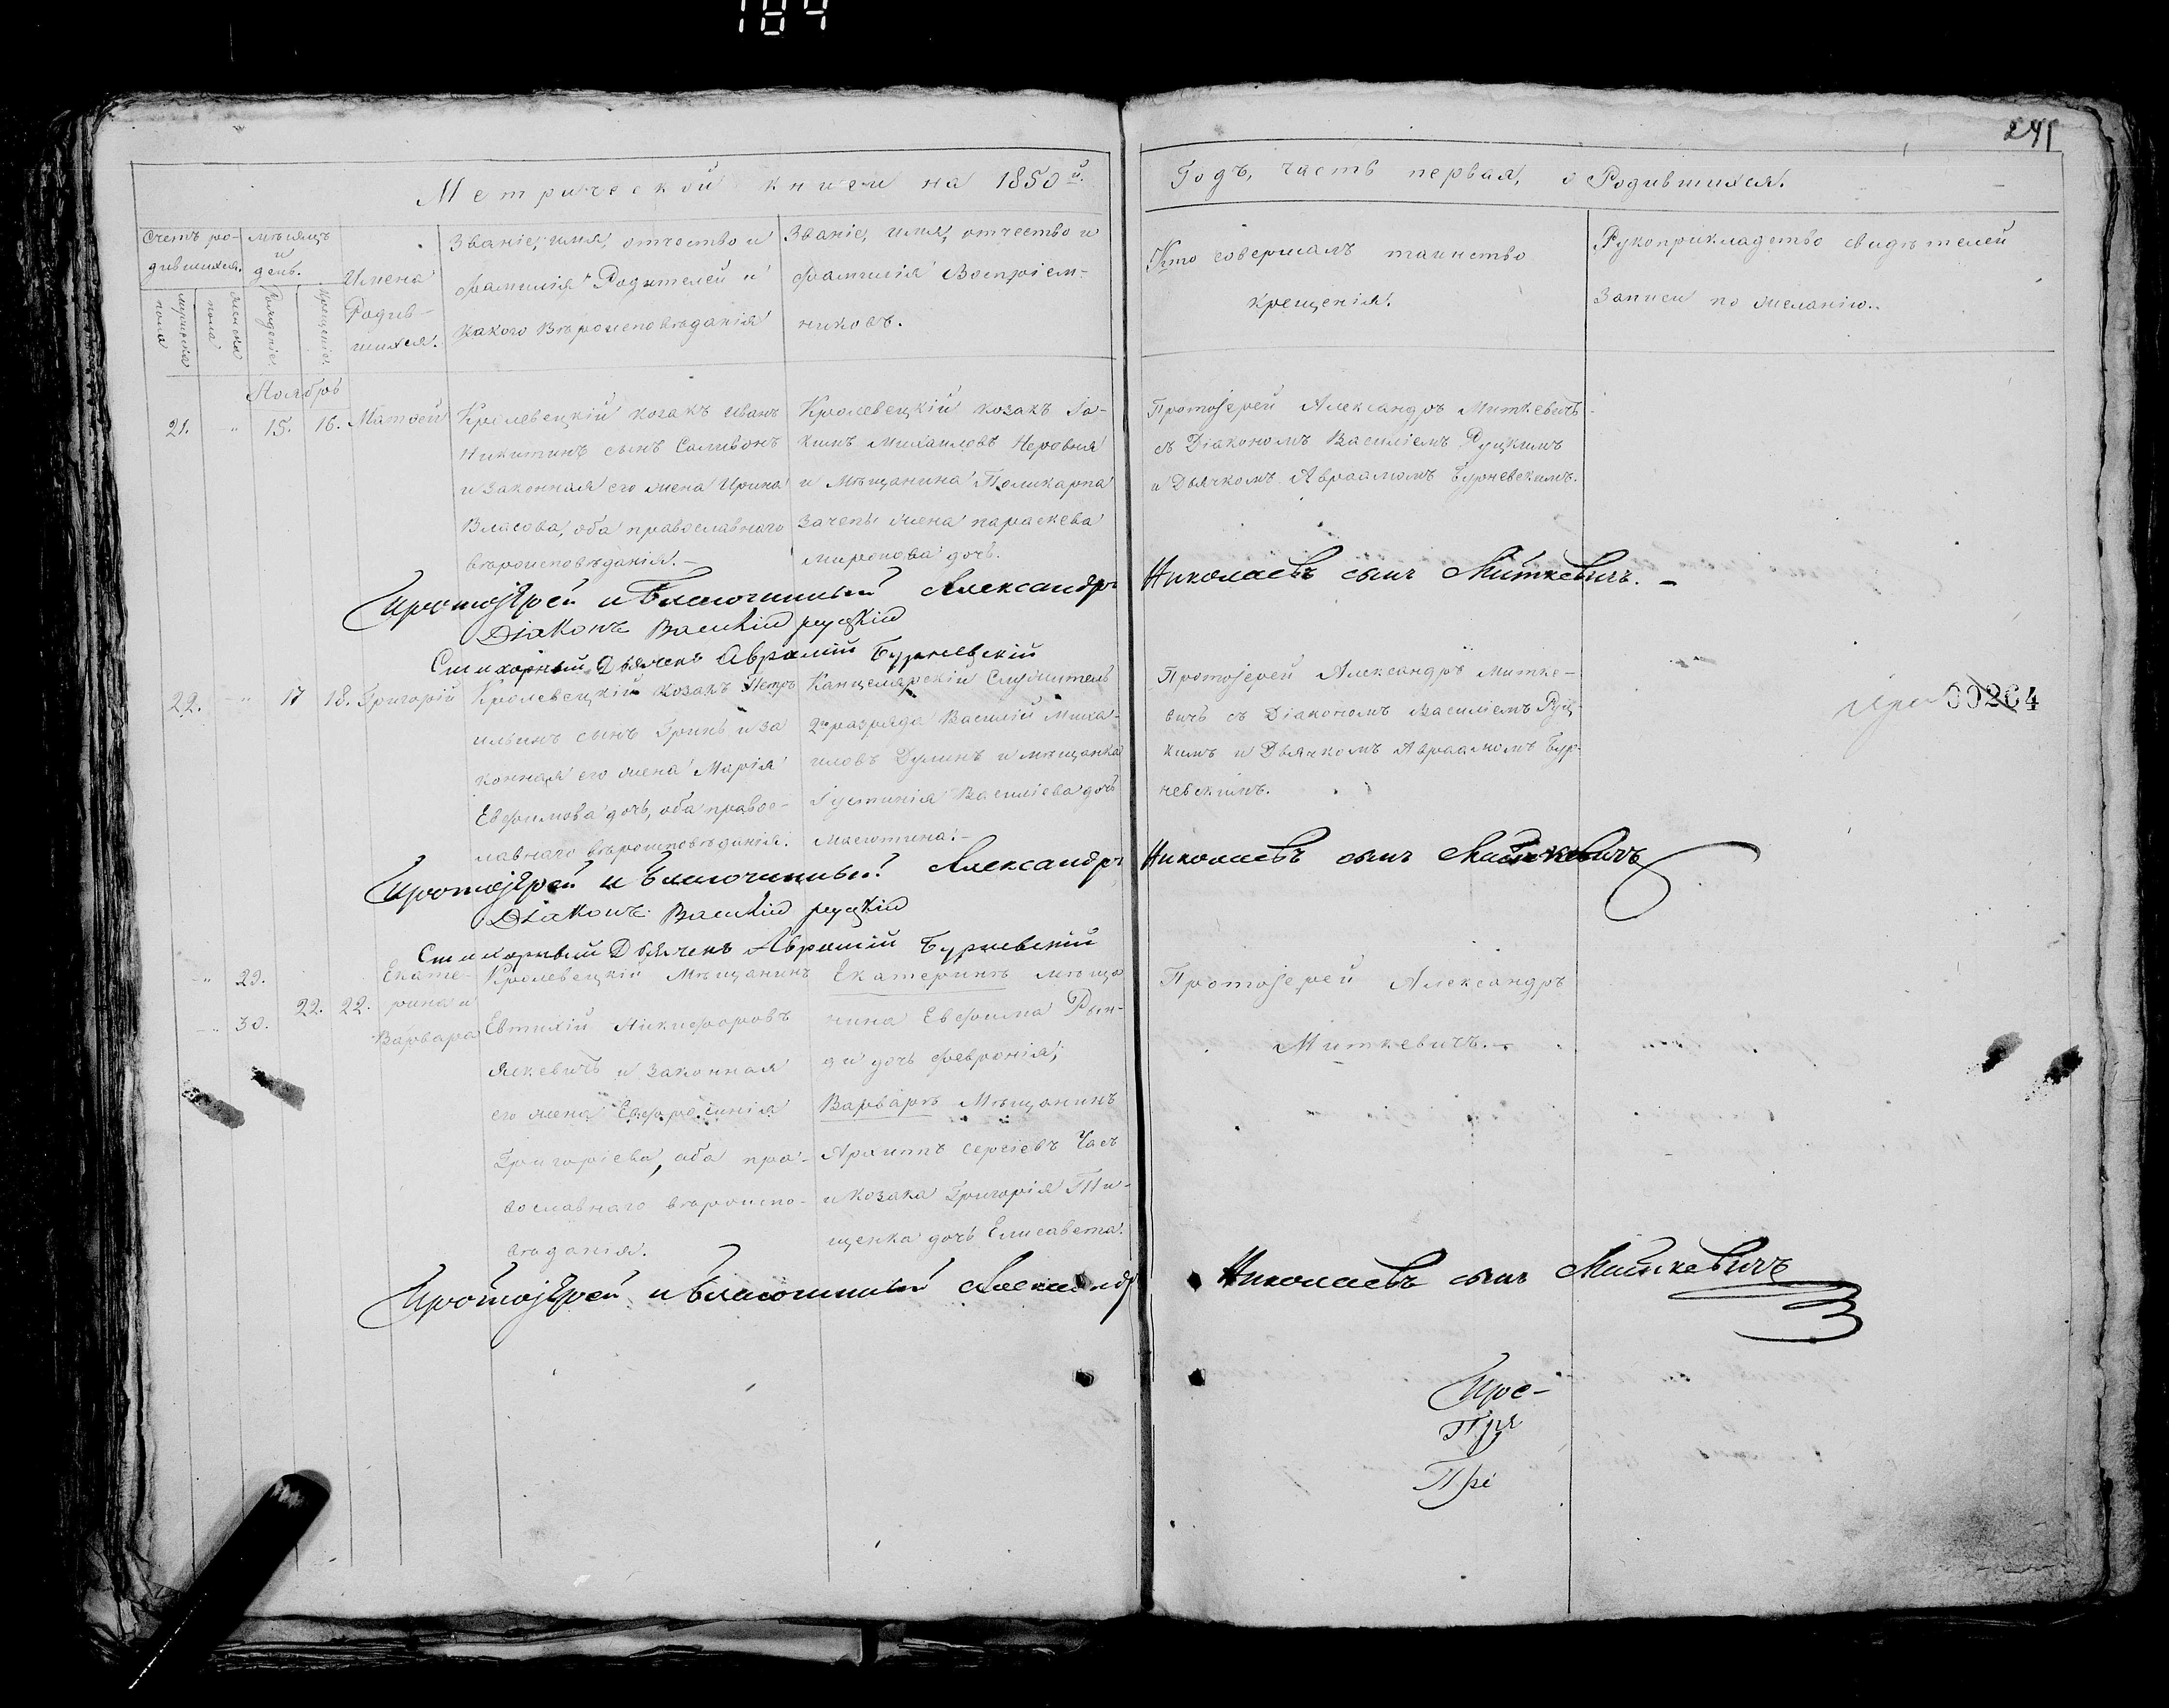 184
241
Метрической книги на 1850й.
Годъ, часть первая, о Родившихся.
Счетъ ро-
дившихся.
мужеска
пола
женска
пола
мѣсяцъ
и
день.
Рожденіе.
Крещеніе.
Имена
Родив-
шихся.
Званіе, имя, отчество и
фамилія Родителей и
какого Вѣроисповѣданія
Званіе, имя, отчество и
фамилія Воспріем-
никовъ.
Кто совершалъ таинство
крещенія.
Рукоприкладство свидѣтелей
Записи по желанію..
Ноябрь
21. " 15. 16. Матѳей
Кролевецкій козакъ Иванъ
Никитинъ сынъ Саливонъ
и законная его жена Ирина
Власова, оба православнаго
вѣроисповѣданія.-
Кролевецкій козакъ Іа-
кимъ Михаиловъ Неровня
и Мѣщанина Поликарпа
Зачепы жена параскева
миронова дочь.
Протоіерей Александръ Миткевичъ
съ Діакономъ Василіемъ Руцкимъ
и Дьячкомъ Авраамомъ Бурневскимъ.
Протоіерей и Благочинный Александръ Николаевъ сынъ Миткевичъ.-
Діаконъ Василій руцкій
Стихарный Дьячекъ Аврамій Бурневскій
22. " 17 18. Григорій
Кролевецкій козакъ Петръ
ильинъ сынъ Гринь и за
конная его жена Марія
Евфимова дочь, оба правос-
лавнаго вѣроисповѣданія.
Канцелярскій Служитель
2го разряда Василій Миха-
иловъ Дулинъ и мѣщанка
Іустинія Василіева дочь
Масютина.-
Протоіерей Александръ Митке-
вичъ съ Діакономъ Василіемъ Руц-
кимъ и Дьячкомъ Авраамомъ Бур-
невскимъ.
00264
Протоіерей и Благочинный Александръ Николаевъ сынъ Миткевичъ
Діаконъ Василій руцкій
Стихарный Дьячекъ Аврамій Бурневскій
" 29.
" 30.
22. 22.
Екате-
рина и
Варвара
Кролевецкій Мѣщанинъ
Евтихій Никифоровъ
Яскевичъ и законная
его жена Евфросинія
Григоріева, оба пра-
вославнаго вѣроиспо-
вѣданія.
Екатеринѣ мѣща
нина Евфима Рын-
ди дочь Февронія;
Варварѣ Мѣщанинъ
Архипъ Сергіевъ Час
и козака Григорія Ти-
щенка дочь Елисавета.
Протоіерей Александръ
Миткевичъ.-
Протоіерей и Благочинный Александр Николаевъ сынъ Миткевичъ
Прі